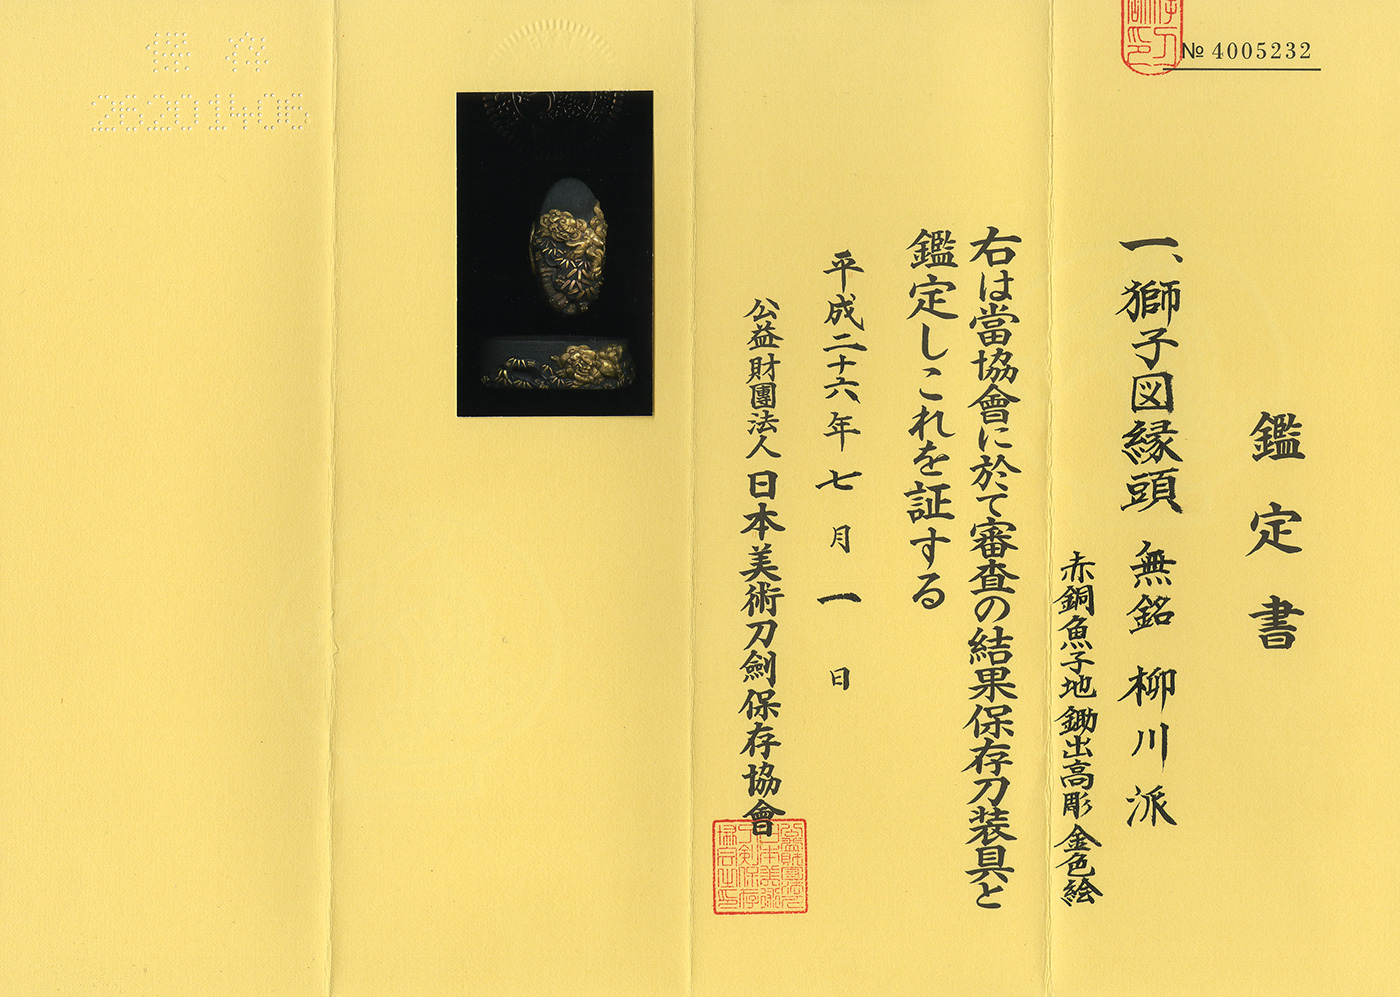 № 4005232
鑑定書
一、獅子図縁頭 無銘 柳川派
赤銅魚子地鋤出高彫金色絵
右は當協會に於て審査の結果保存刀装具と
鑑定しこれを証する
平成二十六年七月一日
公益財團法人日本美術刀劍保存協會
保存
26201406